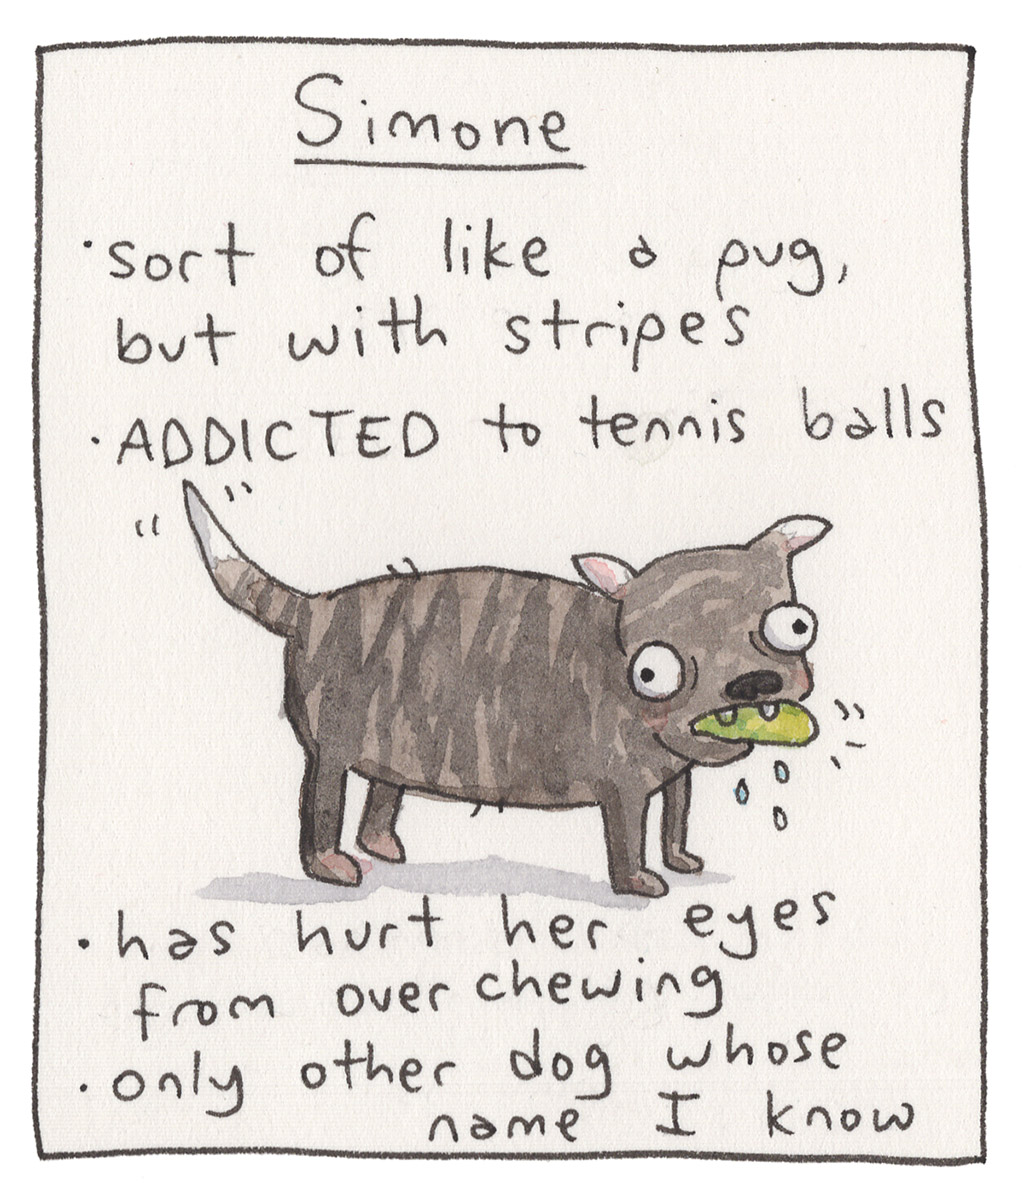 Simone
• sort of like a pug,
but with stripes
• ADDICTED to tennis balls
• has hurt her eyes
from over chewing
• only other dog whose
name I know